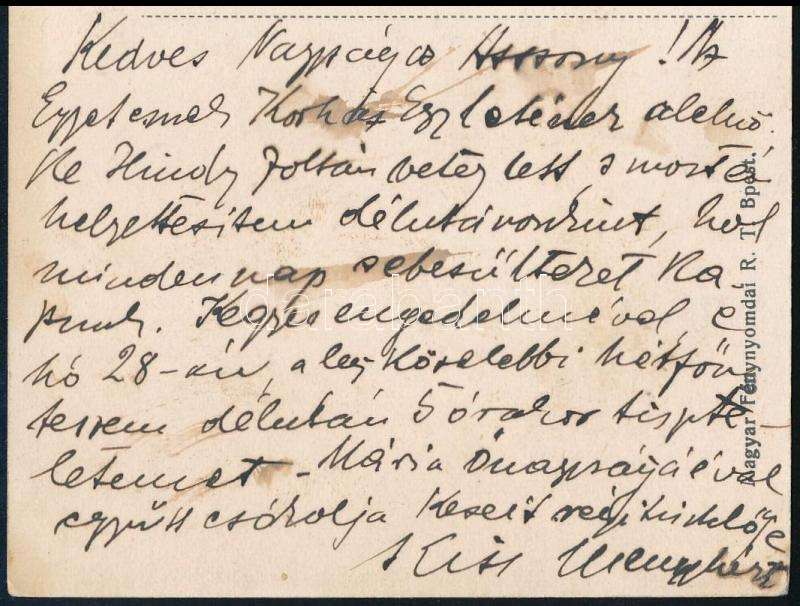 Kedves Nagyságos Asszony! Az
Egyetemek Kórház Egyletének alelnö-
ke Hindy Zoltán beteg lett, s most én
helyettesitem délutánonkint, hol
mindennap sebesülteket ka-
punk. Kegyes engedelmével, e
hó 28-án, a legközelebbi hétfőn
teszem délután 5 órakor tiszte-
letemet – Mária Önagyságáéval
együtt csókolja Kezeit régi tisztelője
Kiss Menyhért
Magyar Fénynyomdai R. T. Bpest.
darabanth